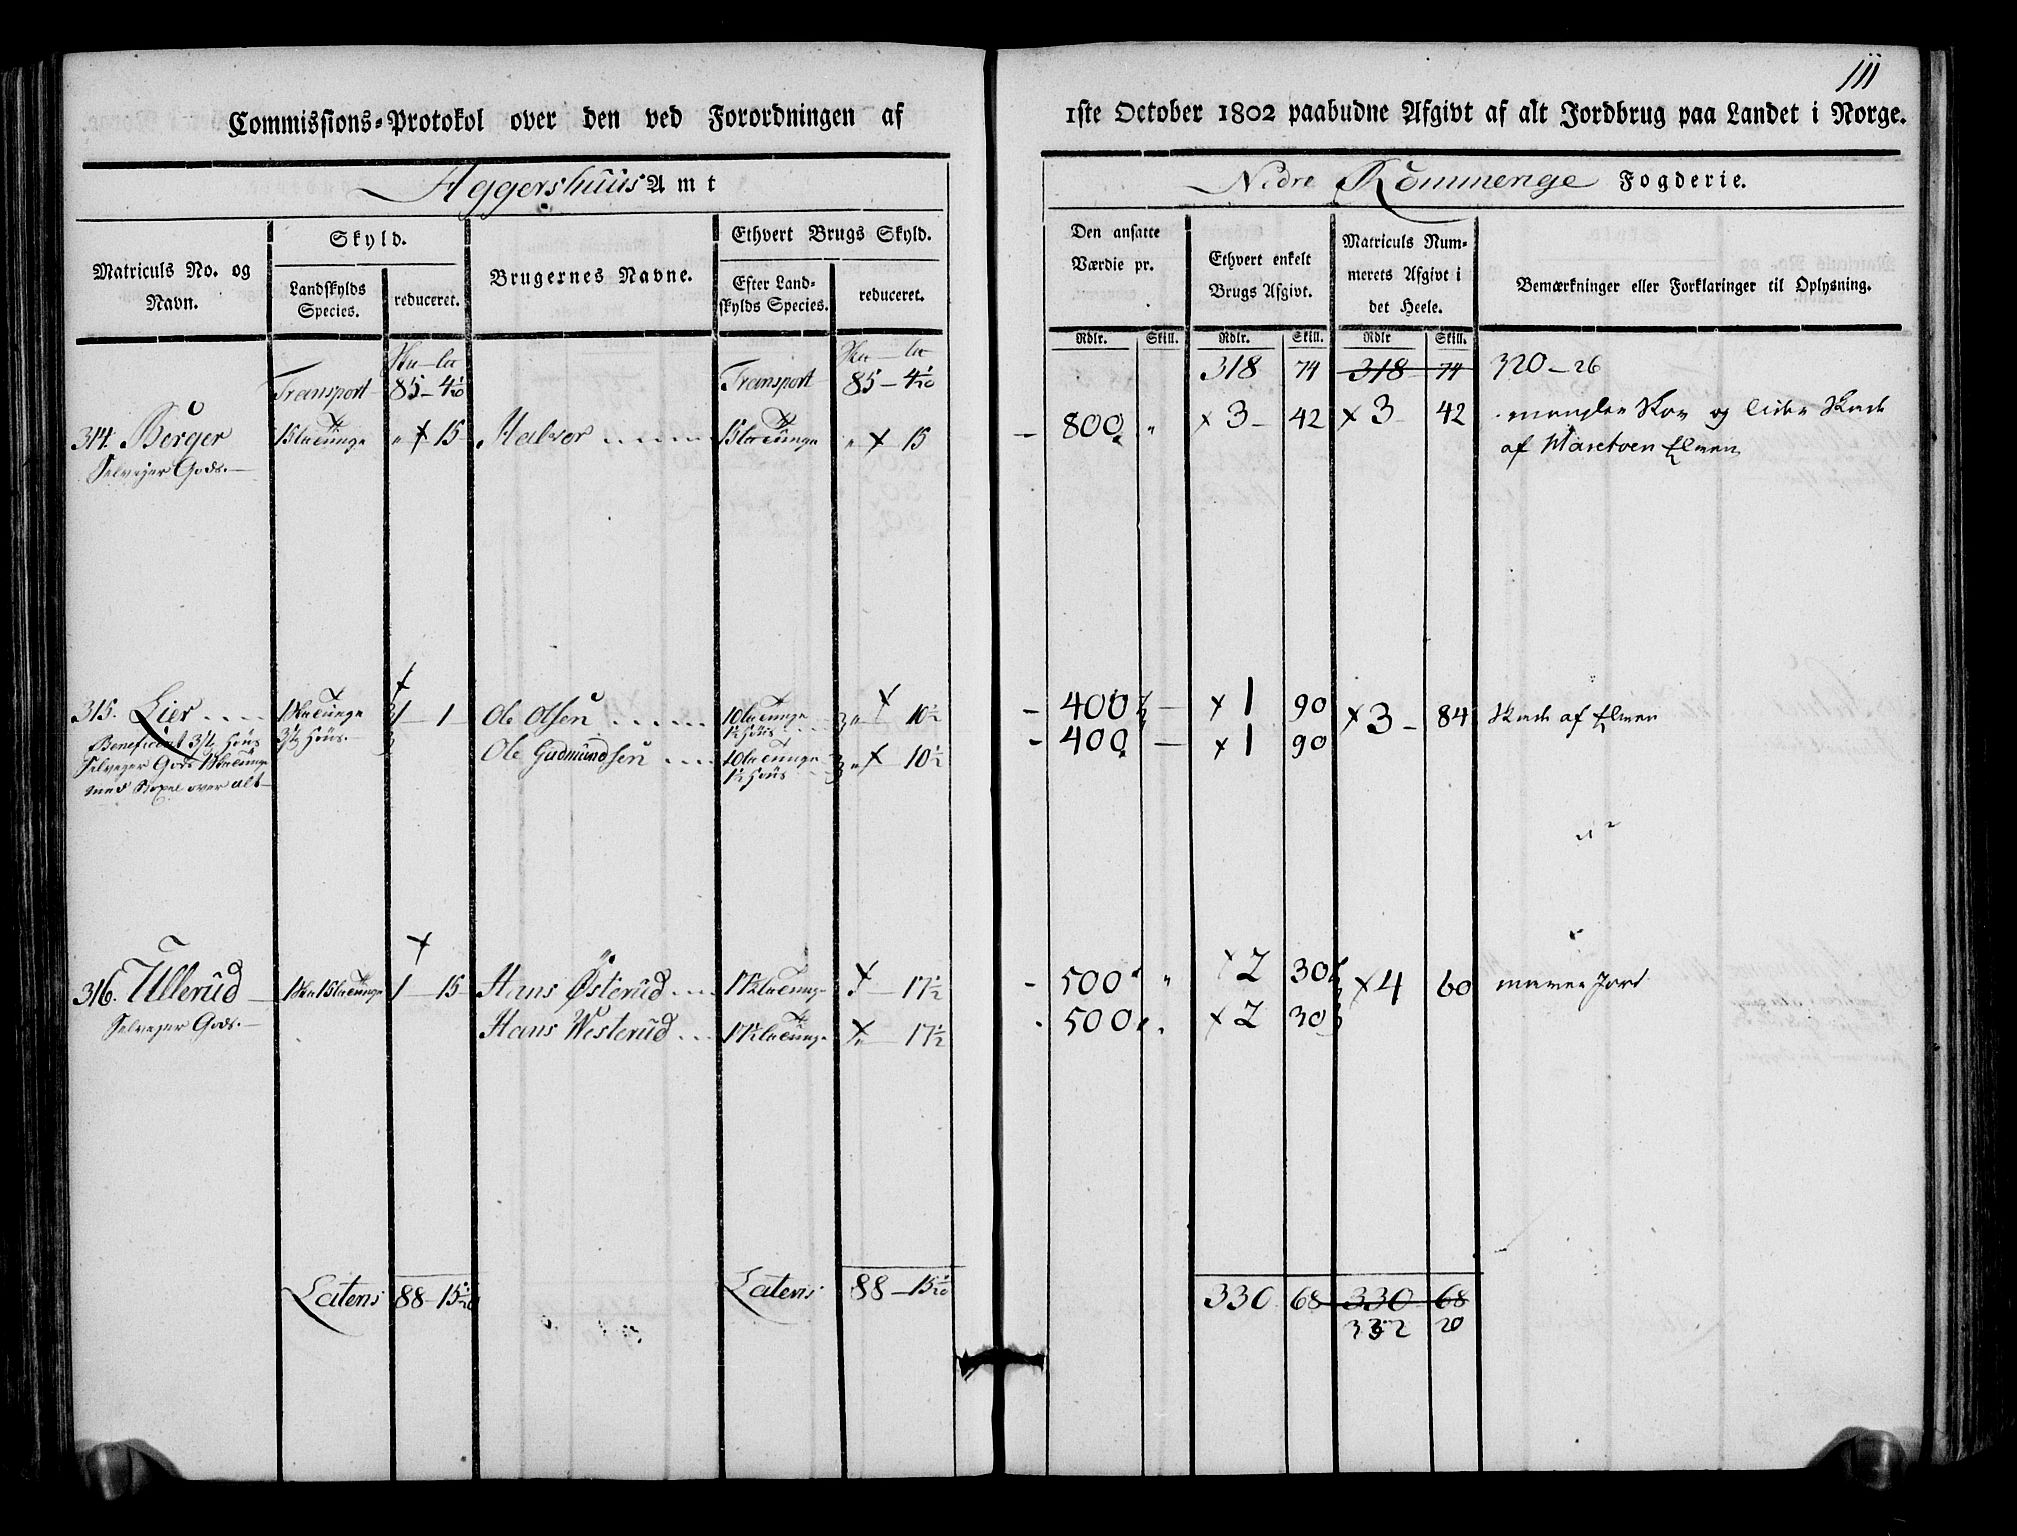 111
Commissions-Protokol over den ved Forordningen af
1ste October 1802 paabudne Afgivt af alt Jordbrug paa Landet i Norge.
Aggershuus Amt
Nedre Rommerige Fogderie.
Matriculs No. og Navn.
Skyld.
Landskylds Species.
reduceret.
Brugernes Navne.
Ethvert Brugs Skyld.
Efter Landskylds Species.
reduceret.
Den ansatte Værdie pr.
Ethvert enkelt Brugs Afgivt.
Matriculs Nummerets Afgivt i det Heele.
Bemærkninger eller Forklaringer til Oplysning.
Rdlr. Skill. Rdlr. Skill. Rdlr Skill.
Transport 85 - 4 1/20 Transport 85 - 4 1/20 318 74 318 74 320 - 26
314. Berger 15 15 800 " x 3 - 42 x 3 42 mangler Skov og lider Skade
Halvor
Selvejer Gods. af Elven
315. Lier 1 - 1 Ole Olsen 10 1/2 400 x 1 90 x 3 - 84 Skade af Elven
Beneficeret
Ole Gudmundsen 10 1/2 400 x 1 90
Selvejer Gods
med Bøxel over alt
316. Ullerud 1 - 15 Hans Østerud 17 1/2 500 " x 2 30 x 4 60 Jord
Selvejer Gods. Hans Westerud 17 1/2 500 x 2 30
Latens 88 - 15 1/20 Latens 88 - 15 1/20 330 68 330 68
332 20